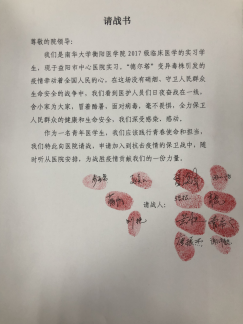 请战书
尊敬的院领导：
我们是南华大学衡阳医学院 2017 级临床医学的实习学
生，现于益阳市中心医院实习。“德尔塔”变异毒株引发的
疫情牵动着全国人民的心。在这场没有硝烟、守卫人民群众
生命安全的战争中，我们看到医护人员们日夜奋战在一线，
舍小家为大家，冒着酷暑，面对病毒，毫不畏惧，全力保卫
人民群众的健康和生命安全。我们深受感染，感动。
作为一名青年医学生，我们应该践行青春使命和担当，
我们特此向医院请战，申请加入到抗击疫情的保卫战中，随
时听从医院安排，为战胜疫情贡献我们的一份力量。
请战人：